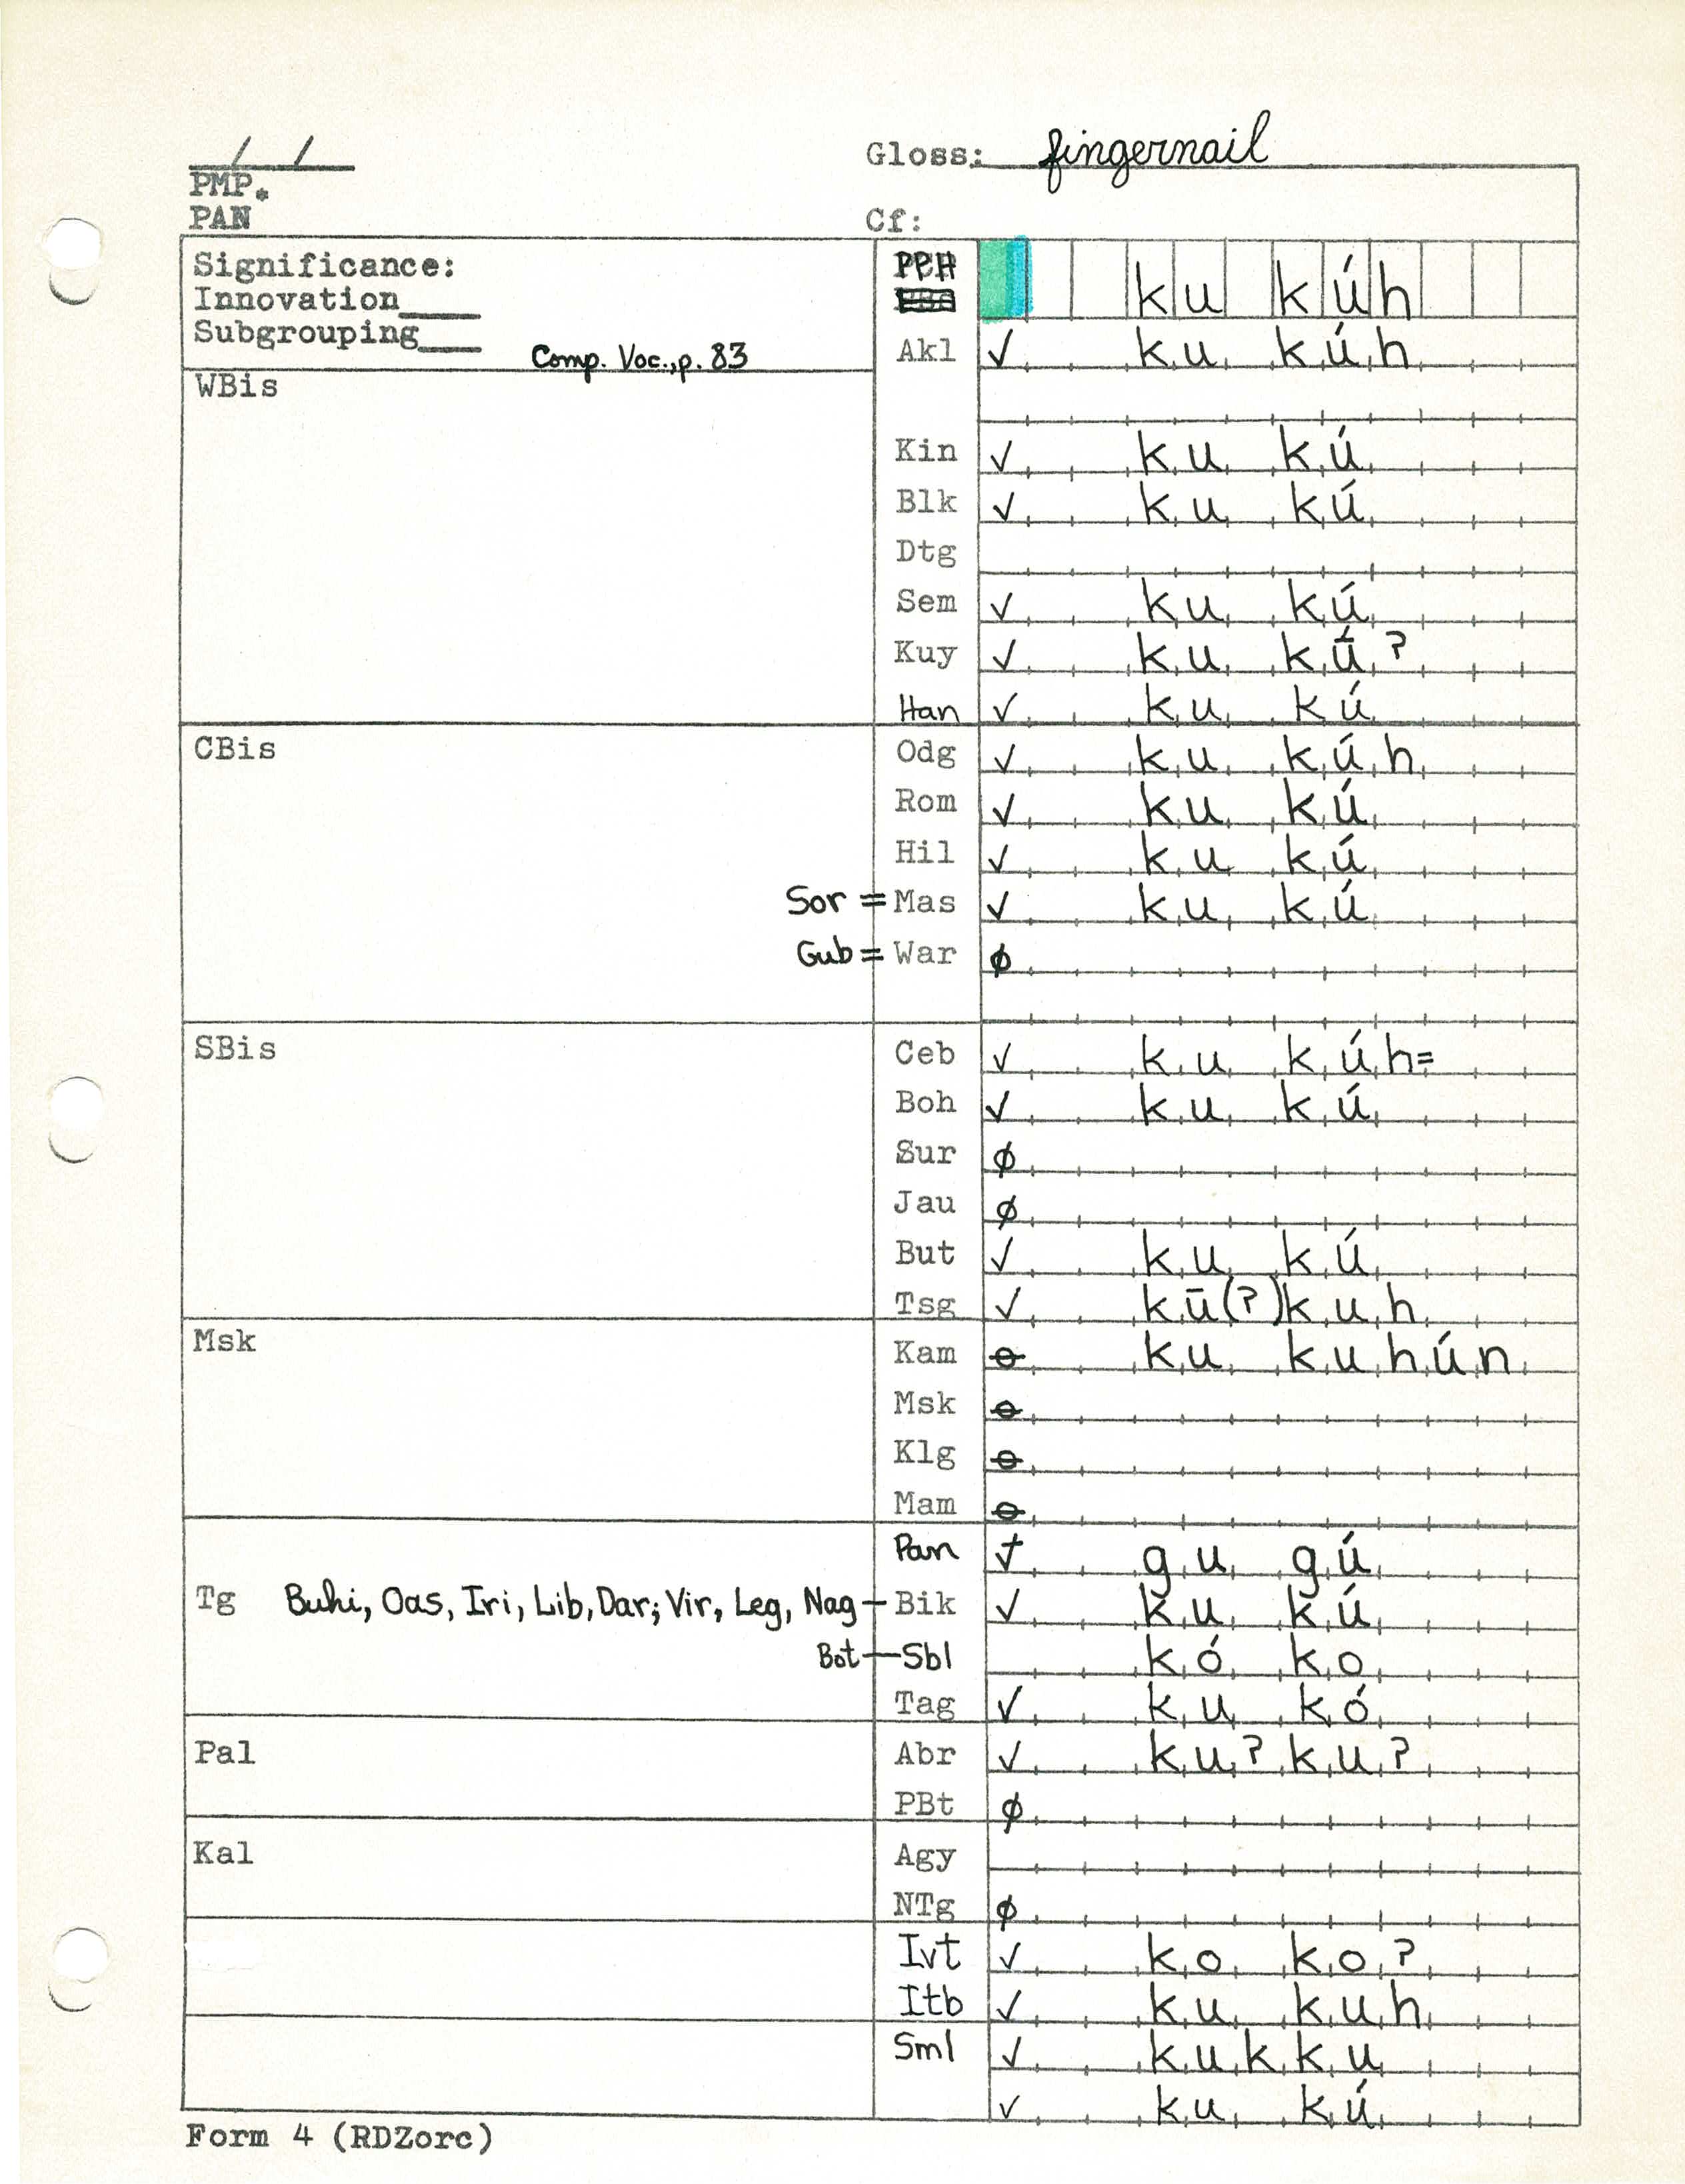 / /
Gloss: fingernail
PMP.
PAN
Cf:
Significance:
Innovation____
Subgrouping___
Comp. Voc., p. 83
PPH ku kúh
WBis
Akl ✓ ku kúh
Kin ✓ ku kú
Blk ✓ ku kú
Dtg
Sem ✓ ku kú
Kuy ✓ ku kú ʔ
Han ✓ ku kú
CBis
Odg ✓ ku kúh
Rom ✓ ku kú
Hil ✓ ku kú
Sor = Mas ✓ ku kú
Gub = War ∅
SBis
Ceb ✓ ku kúh=
Boh ✓ ku kú
Sur ∅
Jau ∅
But ✓ ku kú
Tsg ✓ kū(ʔ)kuh
Msk
Kam ⊖ ku kuhún
Msk ⊖
Klg ⊖
Mam ⊖
Pan ✓ gu gú
Tg Buhi, Oas, Iri, Lib, Dar; Vir, Leg, Nag — Bik ✓ ku kú
Bot — Sbl kó ko
Tag ✓ ku kó
Pal
Abr ✓ kuʔkuʔ
PBt ∅
Kal
Agy
NTg ∅
Ivt ✓ ko koʔ
Itb ✓ ku kuh
Sml ✓ kukku
✓ ku kú
Form 4 (RDZorc)